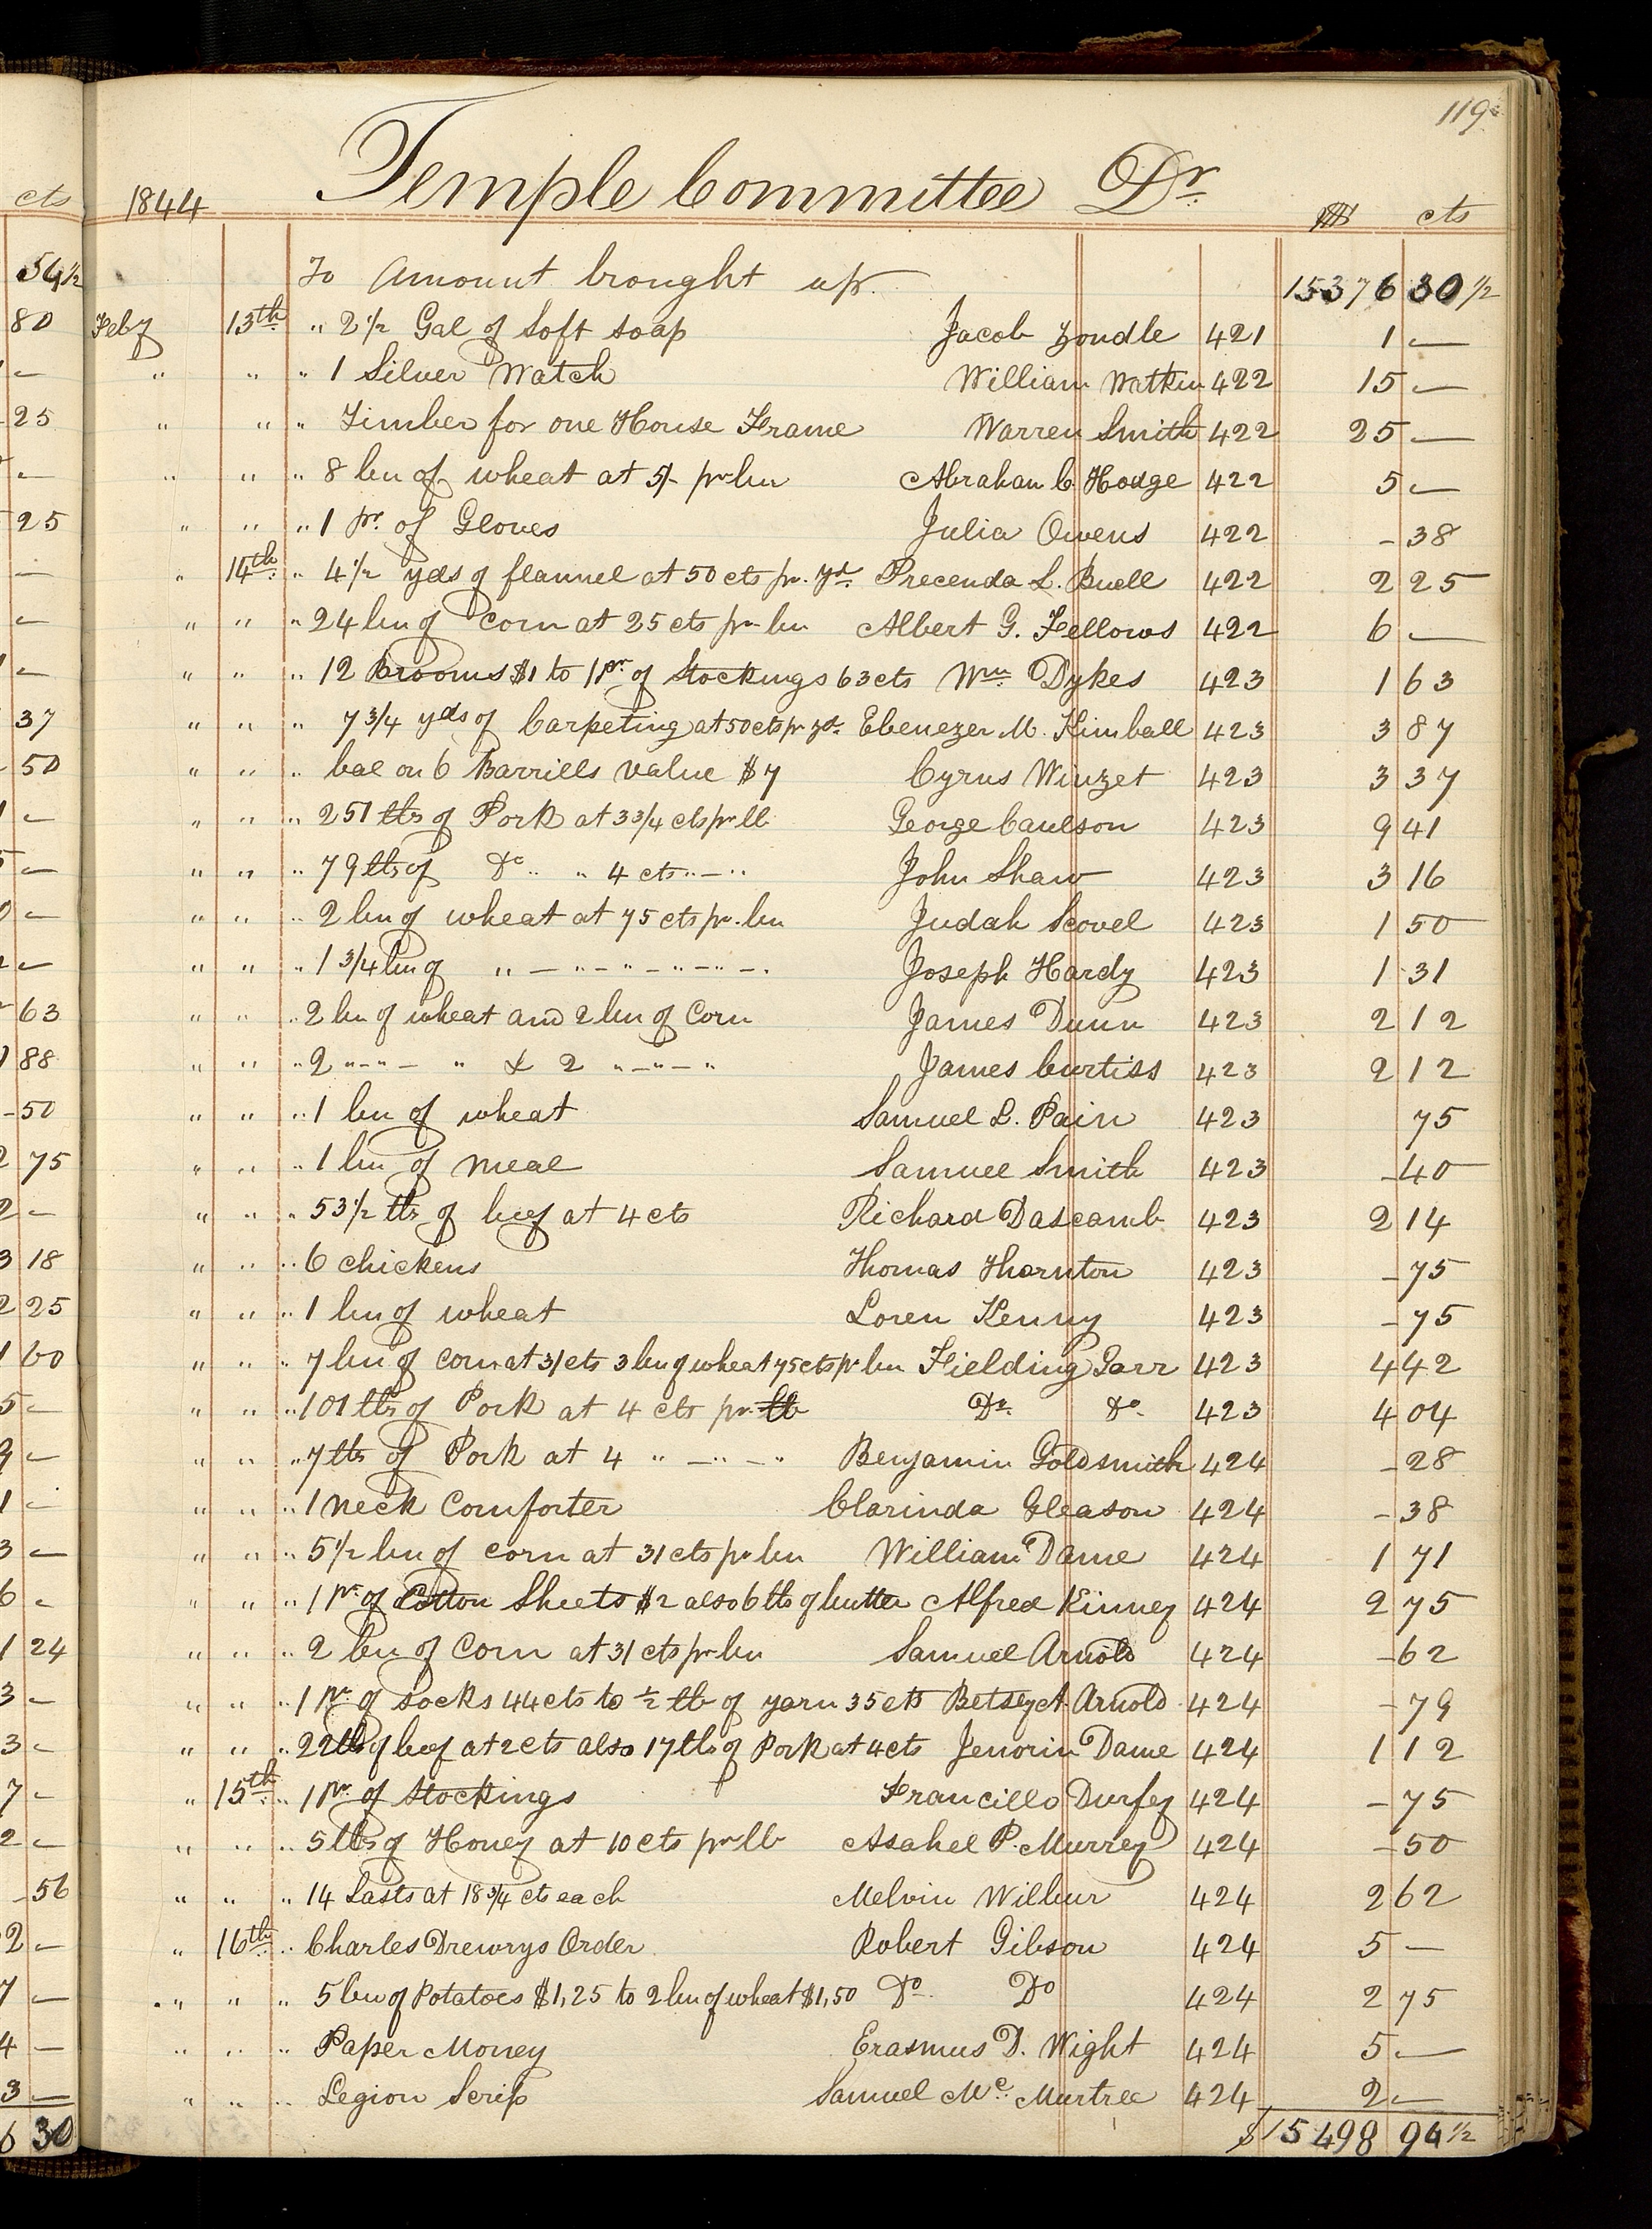 119
1844 Temple Committee Dr
$ cts
To Amount brought up 15376 30 1/2
Feby 13th " 2 1/2 Gal of Soft soap Jacob Zondle 421 1 —
" " " 1 Silver Watch William Watkin 422 15 —
" " " Timber for one House Frame Warren Smith 422 25 —
" " " 8 bu of wheat at 5/- pr bu Abraham C. Hodge 422 5 —
" " " 1 pr. of Gloves Julia Owens 422 - 38
" 14th " 4 1/2 yds of flannel at 50 cts pr. yd. Precenda L. Buell 422 2 25
" " " 24 bu of corn at 25 cts pr bu Albert G. Fellows 422 6 —
" " " 12 Brooms $1 to 1 pr of Stockings 63 cts Wm Dykes 423 1 63
" " " 7 3/4 yds of Carpeting at 50 cts pr yd. Ebenezer M. Kimball 423 3 87
" " " bal on 6 Barrills value $7 Cyrus Winzet 423 3 37
" " " 251 lbs of Pork at 3 3/4 cts pr lb George Caulson 423 9 41
" " " 79 lbs of Do " " 4 cts " — " John Shaw 423 3 16
" " " 2 bu of wheat at 75 cts pr. bu Judah Scovel 423 1 50
" " " 1 3/4 bu of " — " — " — " — " — " Joseph Hardy 423 1 31
" " " 2 bu of wheat and 2 bu of Corn James Dunn 423 2 12
" " " 2 " — " — " & 2 " — " — " James Curtiss 423 2 12
" " " 1 bu of wheat Samuel L. Pain 423 75
" " " 1 bu of meal Samuel Smith 423 - 40
" " " 53 1/2 lbs of beef at 4 cts Richard Dascamb 423 2 14
" " " 6 chickens Thomas Thornton 423 - 75
" " " 1 bu of wheat Loren Kenny 423 - 75
" " " 7 bu of corn at 31 cts 3 bu of wheat 75 cts pr bu Fielding Garr 423 4 42
" " " 101 lbs of Pork at 4 cts pr. lb Do. Do. 423 4 04
" " " 7 lbs of Pork at 4 " — " — " Benjamin Goldsmith 424 - 28
" " " 1 neck Comforter Clarinda Gleason 424 - 38
" " " 5 1/2 bu of corn at 31 cts pr bu William Dame 424 1 71
" " " 1 pr. of Cotton Sheets $2 also 6 lbs of butter Alfred Kinney 424 2 75
" " " 2 bu of Corn at 31 cts pr bu Samuel Arnold 424 - 62
" " " 1 pr. of socks 44 cts to 1/2 lb of yarn 35 cts Betsey A. Arnold 424 - 79
" " " 22 lbs of beef at 2 cts also 17 lbs of Pork at 4 cts Janorin Dame 424 1 12
" 15th " 1 pr. of Stockings Francillo Durfey 424 - 75
" " " 5 lbs of Honey at 10 cts pr lb Asahel P. Murrey 424 - 50
" " " 14 Lasts at 18 3/4 cts each Melvin Wilbur 424 2 62
" 16th " Charles Drewrys Order Robert Gibson 424 5 —
" " " 5 bu of Potatoes $1,25 to 2 bu of wheat $1,50 Do. Do 424 2 75
" " " Paper Money Erasmus D. Wight 424 5 —
" " " Legion Scrip Samuel Mc. Murtree 424 2 —
$15498 94 1/2